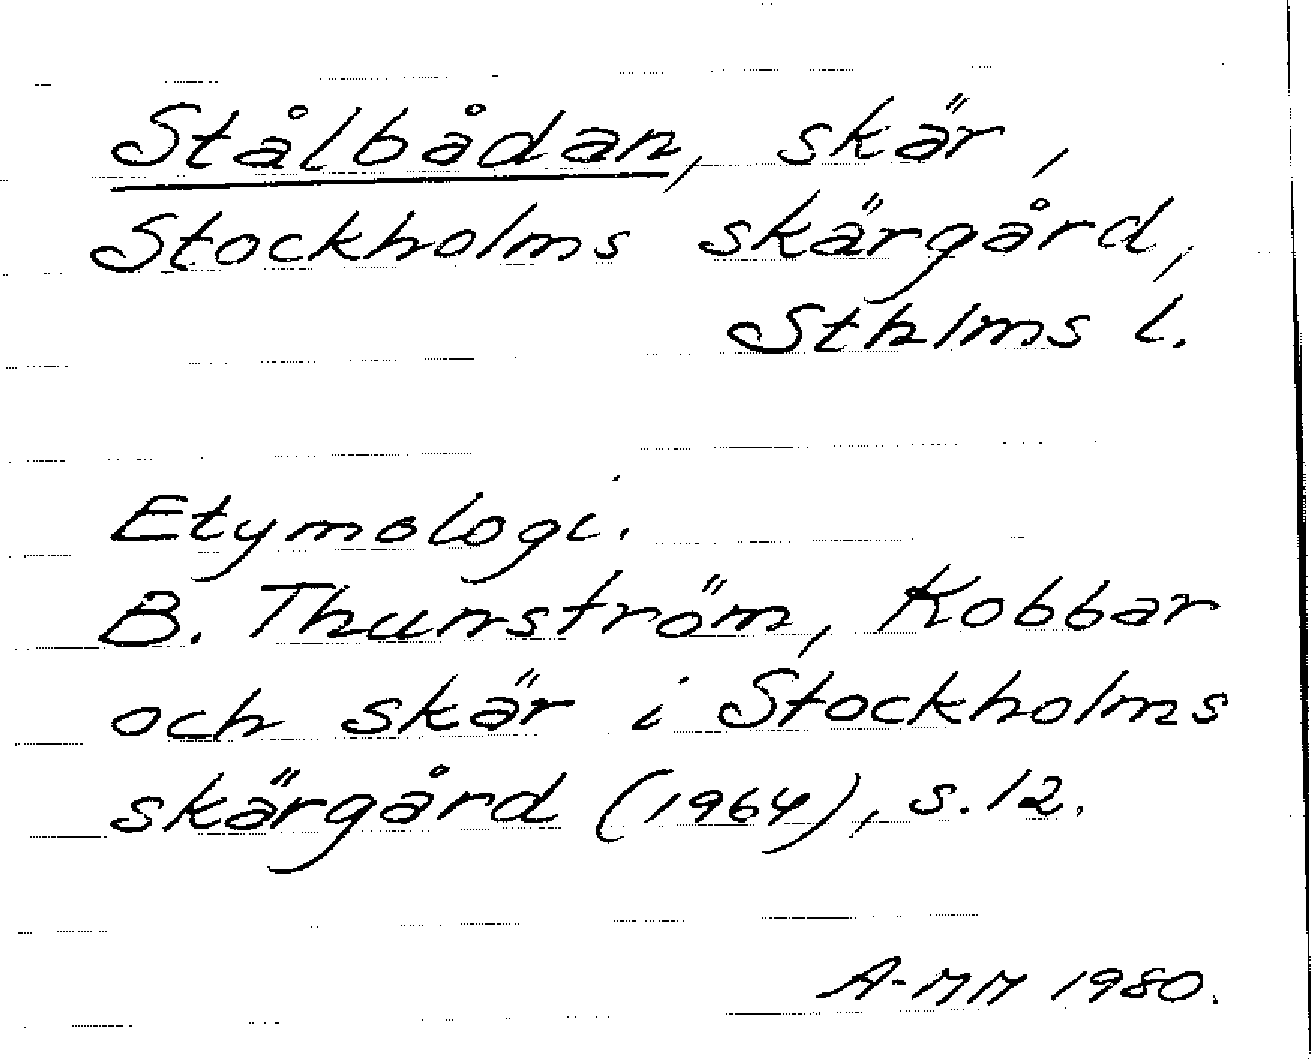 Stålbådan, skär,
Stockholms skärgård,
Sthlms l.
Etymologi.
B. Thunström, Kobbar
och skär i Stockholms
skärgård (1964), s. 12.
A-MM 1980.